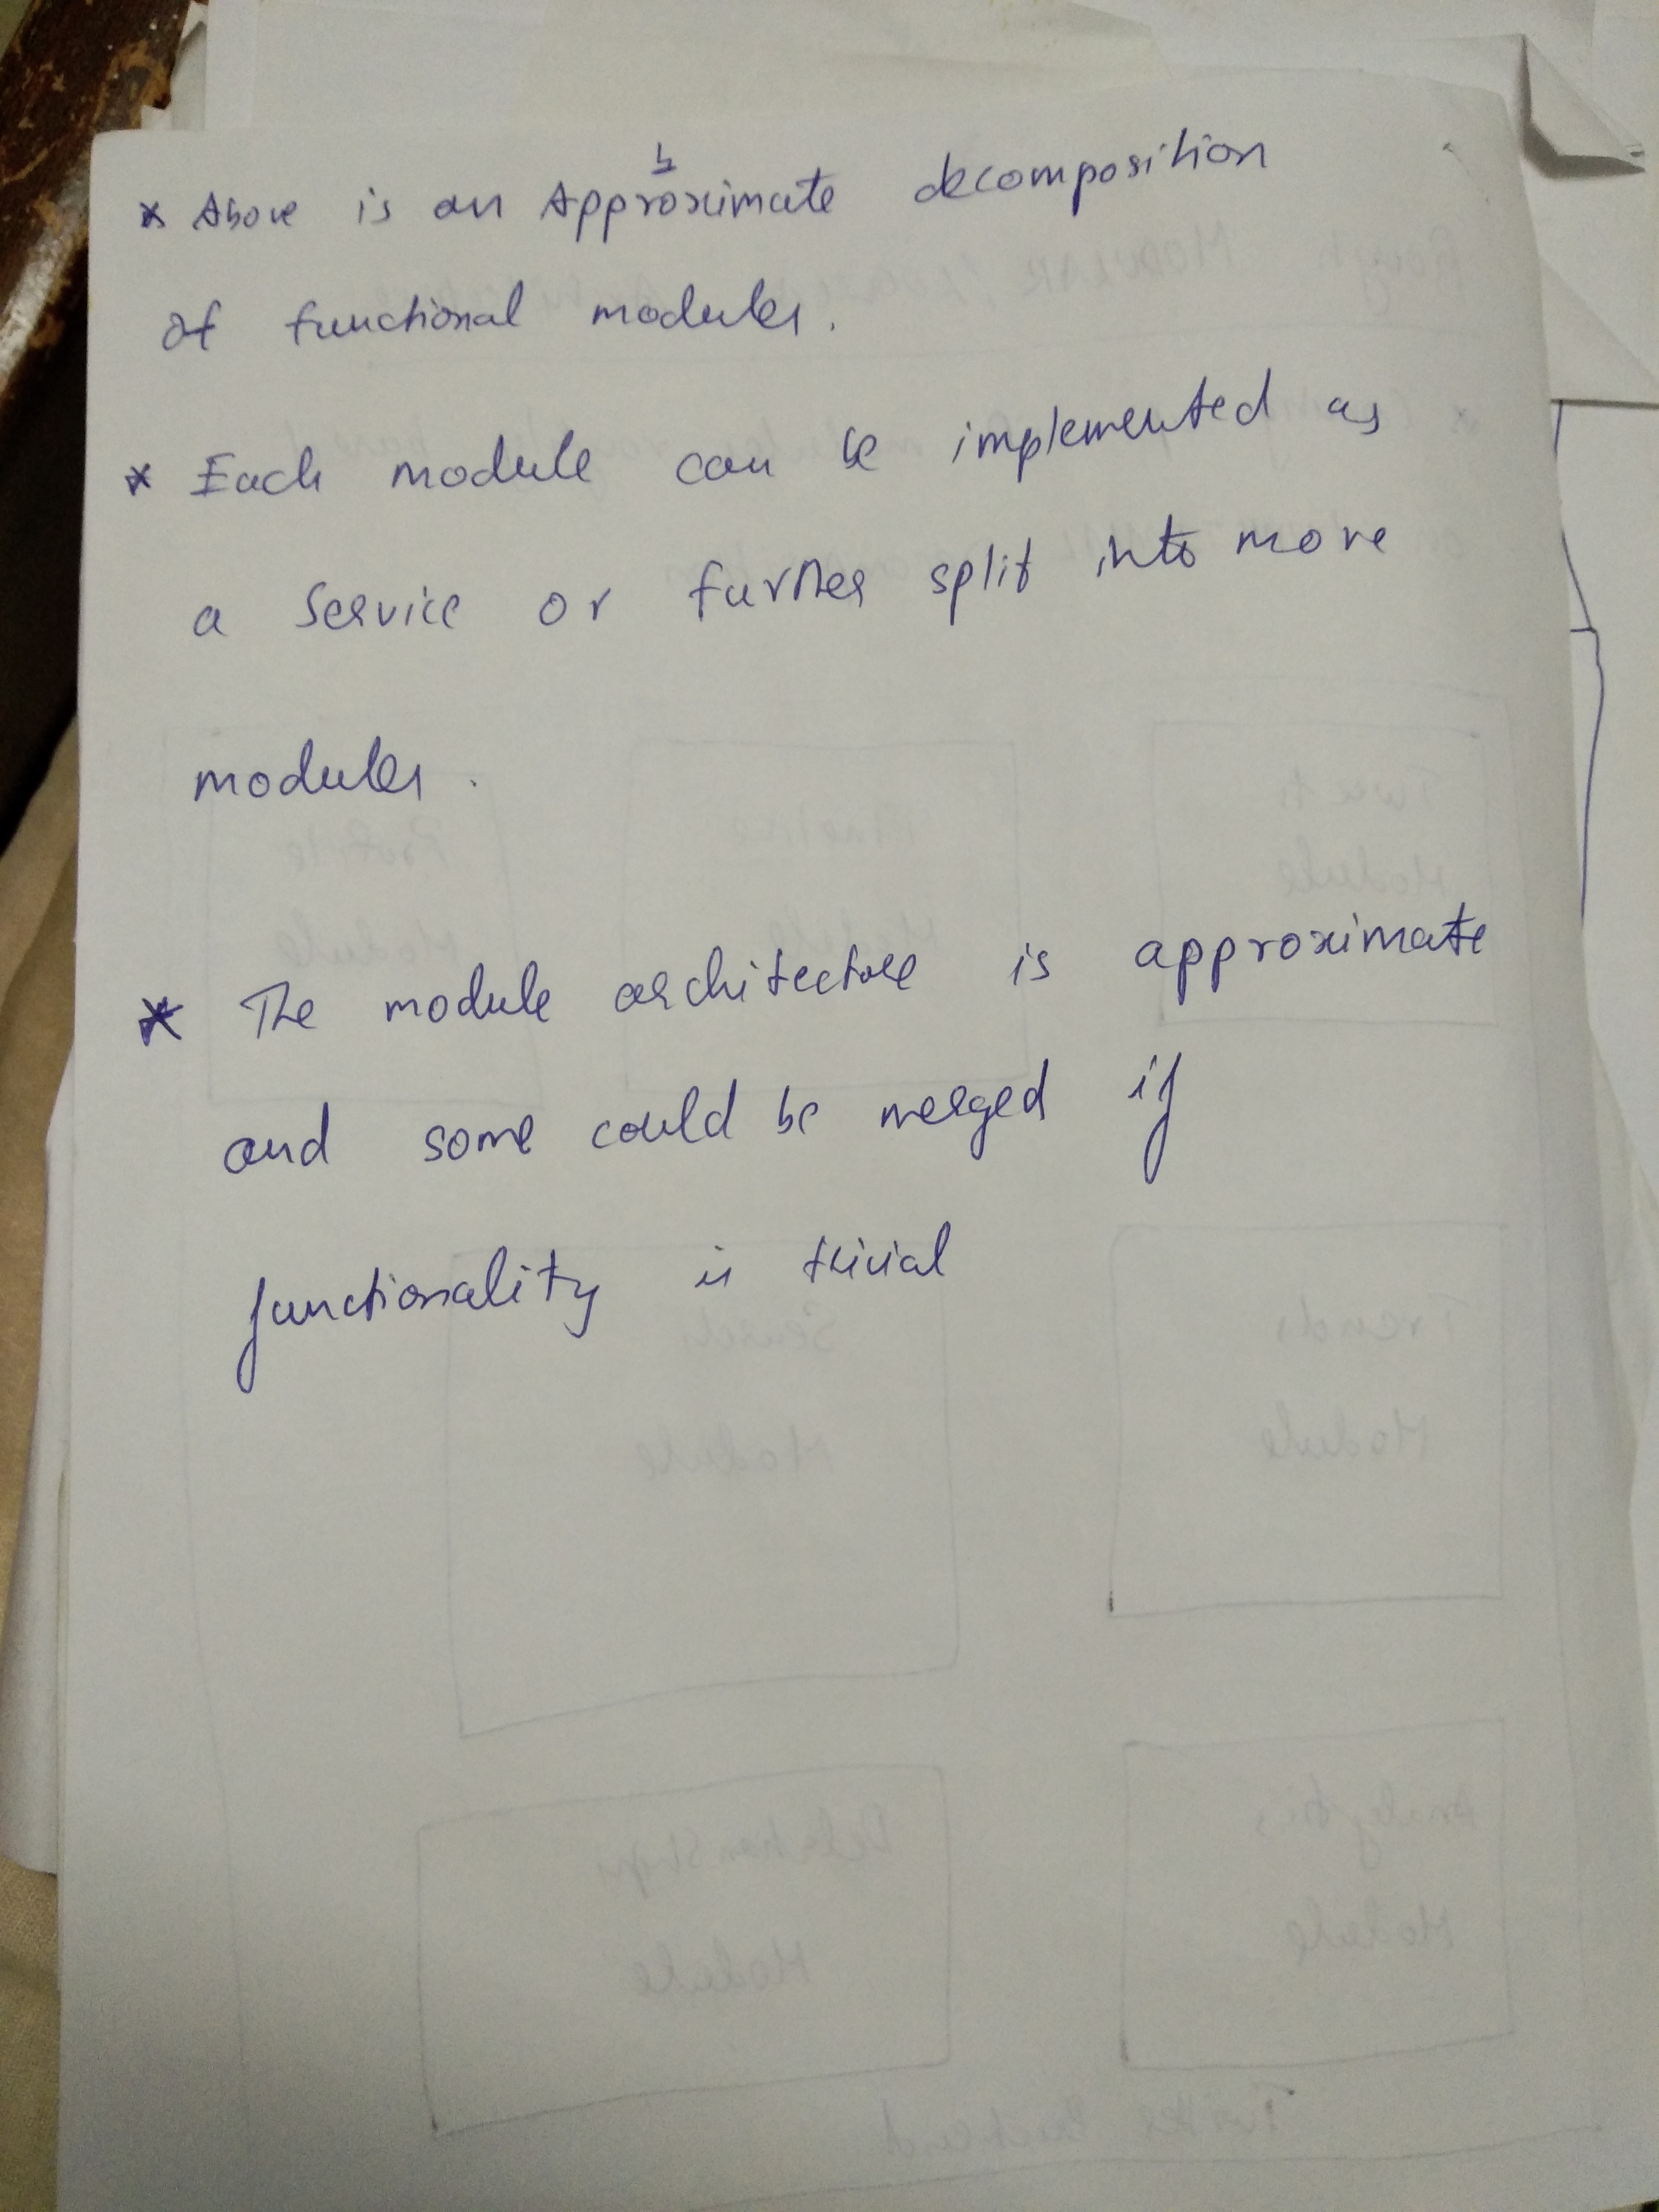 * Above is an Approximate decomposition
of functional modules.
* Each module can be implemented as
a service or further split into more
modules.
* The module architecture is approximate
and some could be merged if
functionality is trivial